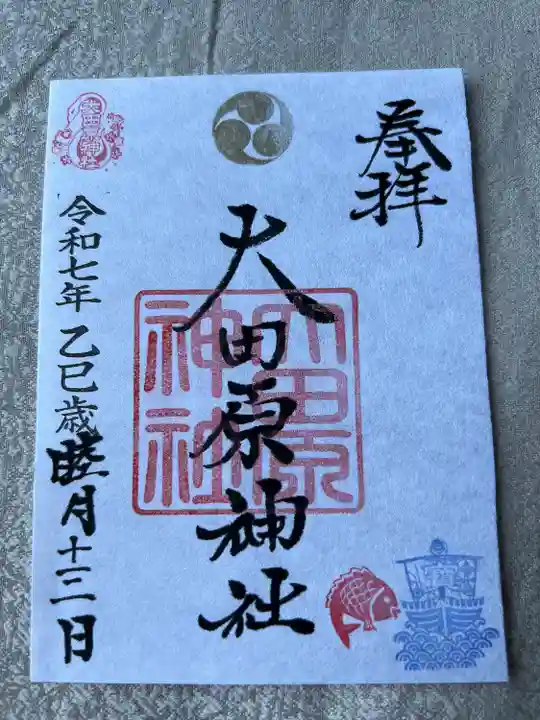 奉拝
大田原神社
大田原
神社
令和七年 乙巳歳 睦月十二日
大田原神社
寳